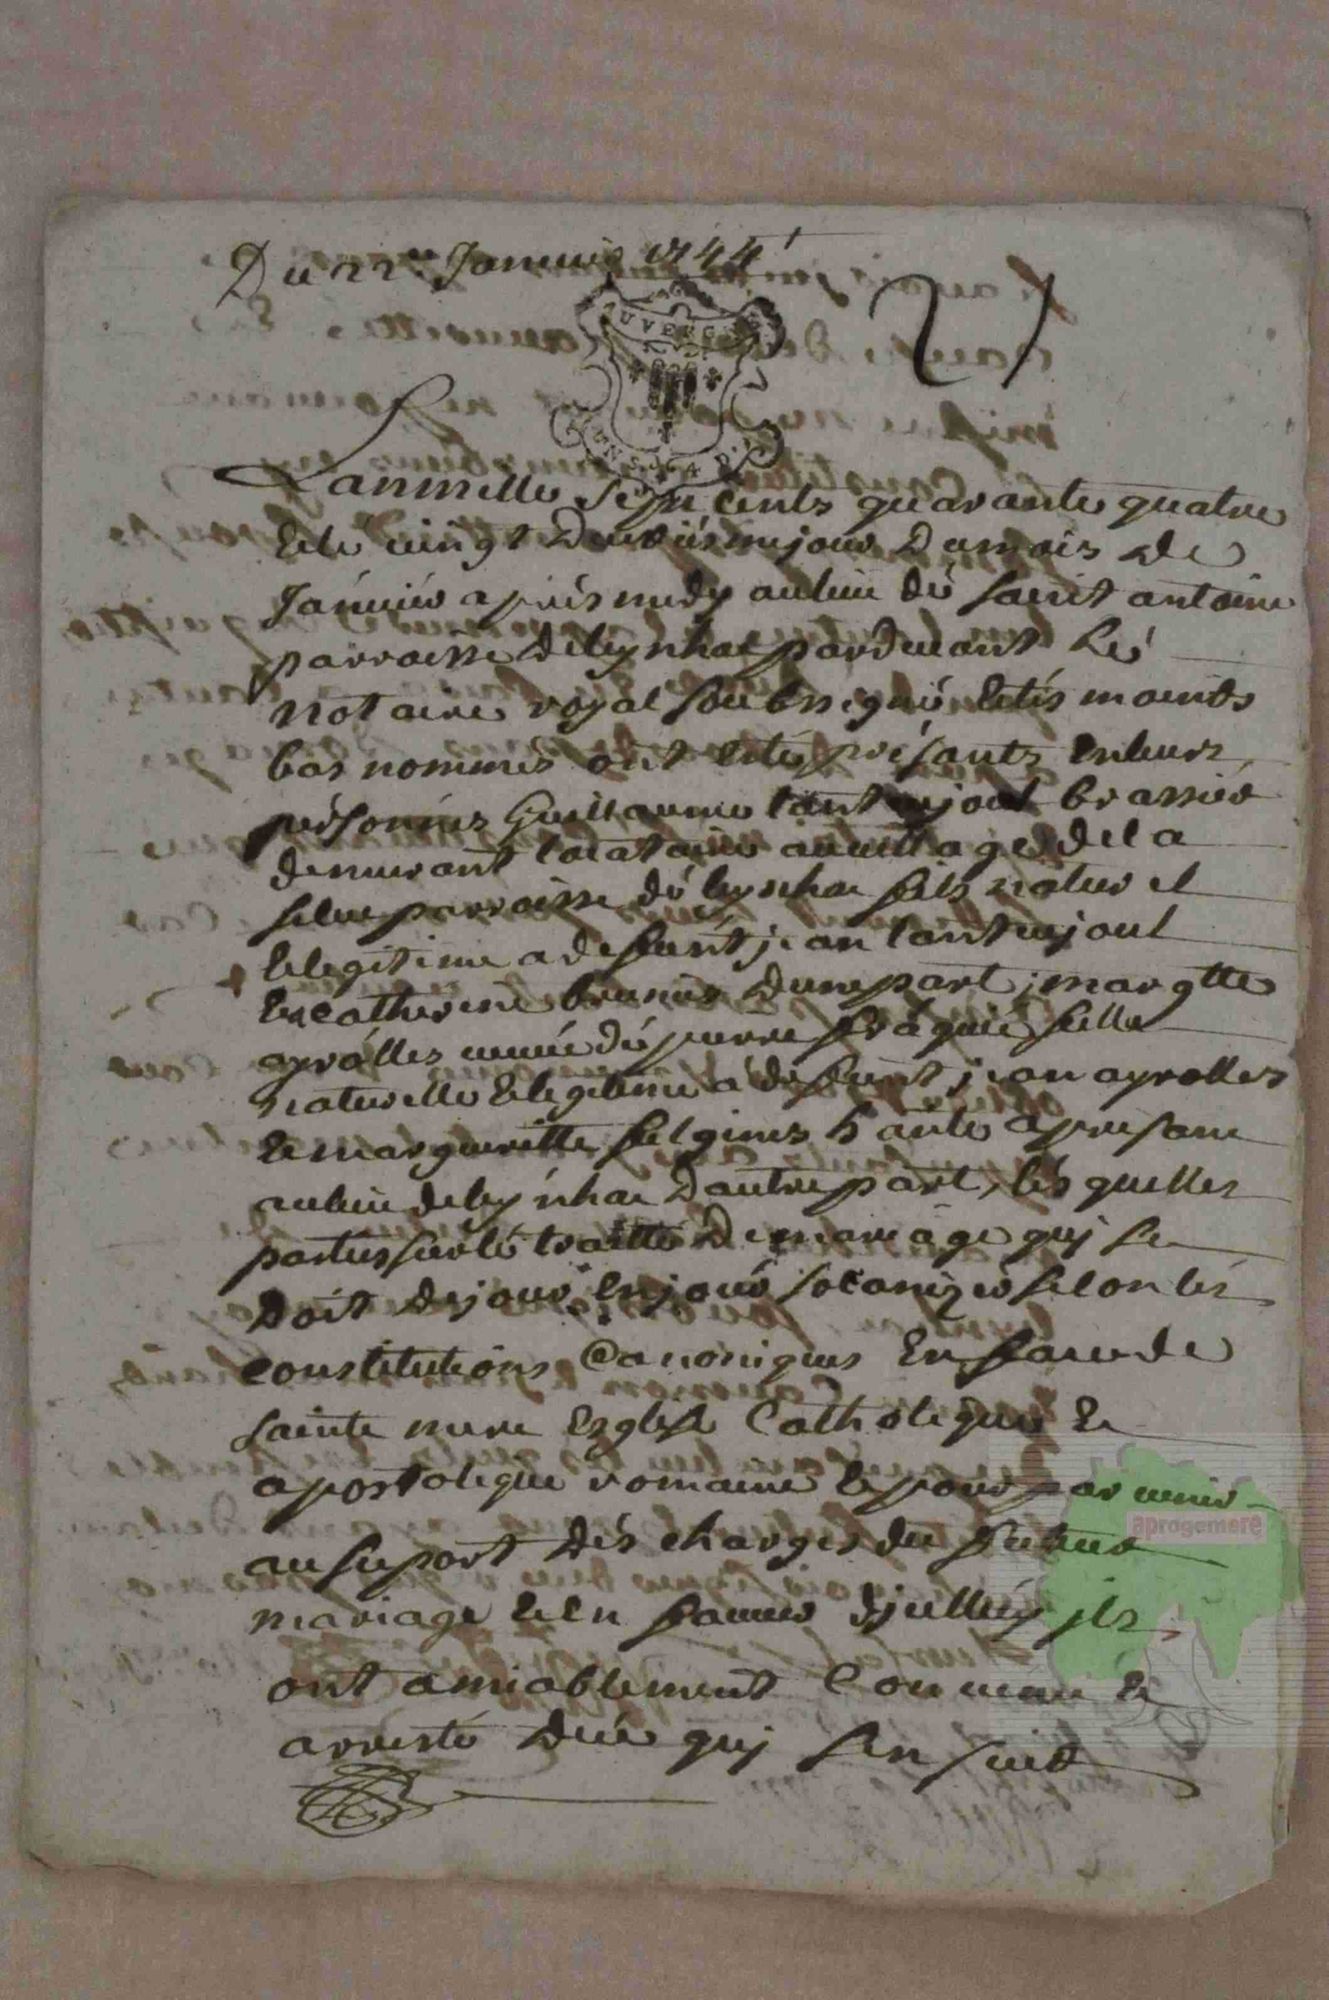 Du 22e Janvier 1744
AUVERGNE
L'an mille sept cents quarante quatre
et le vingt deuxiesme jour du mois de
Janvier apres midy au lieu de saint antoine
parroisse de leynhac pardevant le
notaire royal soubssigné et tesmoints
bas nommés ont esté présants en leurs
persones Guillaume lantuejoul brassier
demeurant locataire au village de la
parroisse de leynhac fils naturel
et legitime a defunt jean lantuejoul
et catherine d'une part, margtte
ayrolles veuve de pierre fille
naturelle et legitime a defunt jean ayrolles
et margueritte felgines h'ante a presant
au lieu de leynhac d'autre part, lesquelles
parties sur le traitté de mariage quj se
doit de jour en jour solanizer selon les
constitutions Canoniques En face de
sainte mere Esglise Catholique et
apostolique romaine et pour parvenir
au suport des charges du futur
mariage et en faveur d'jcelluy jls
ont amiablement convenu et
arresté de ce quj sen suit
aprogemere